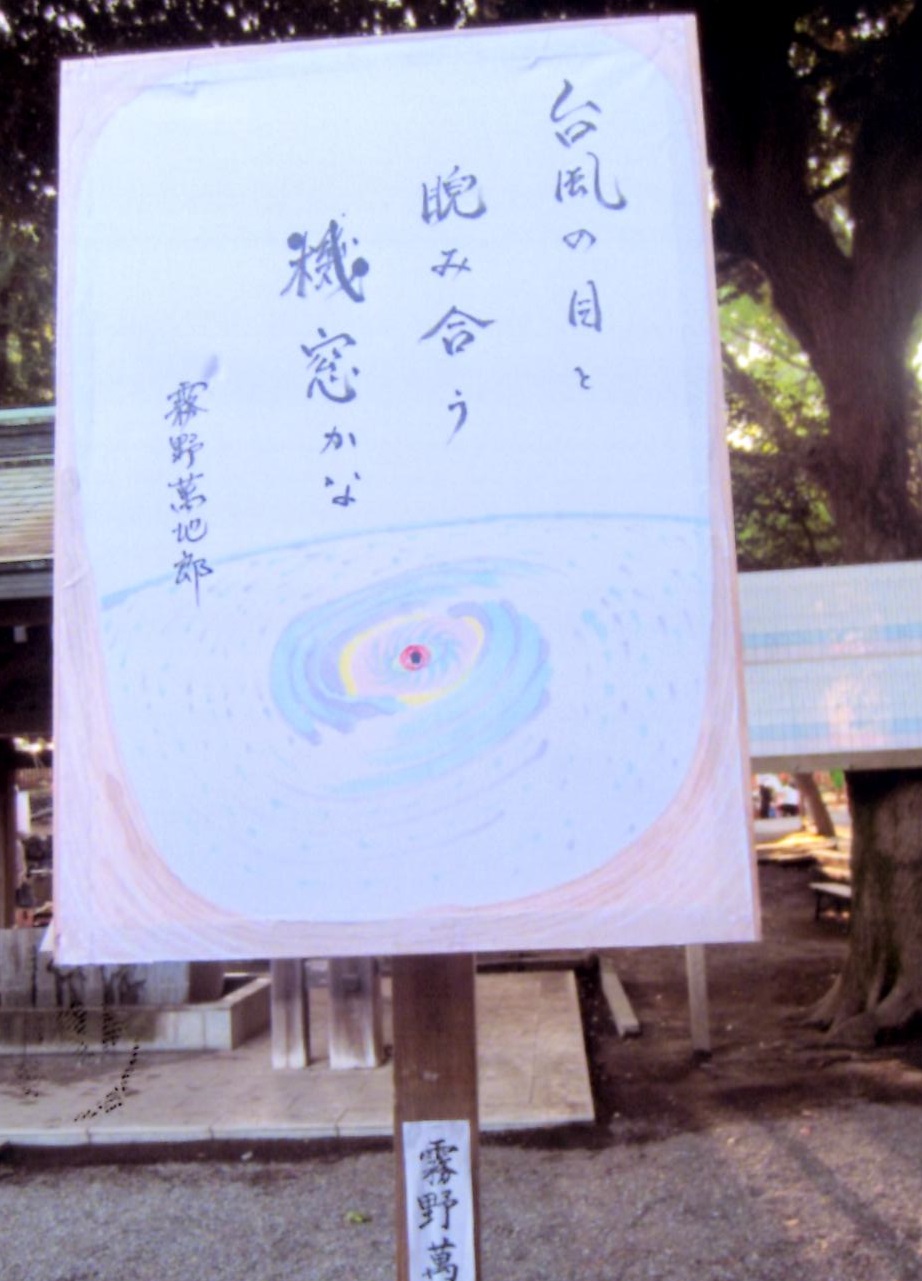 台風の目と
睨み合う
機窓かな
霧野萬地郎
霧野萬